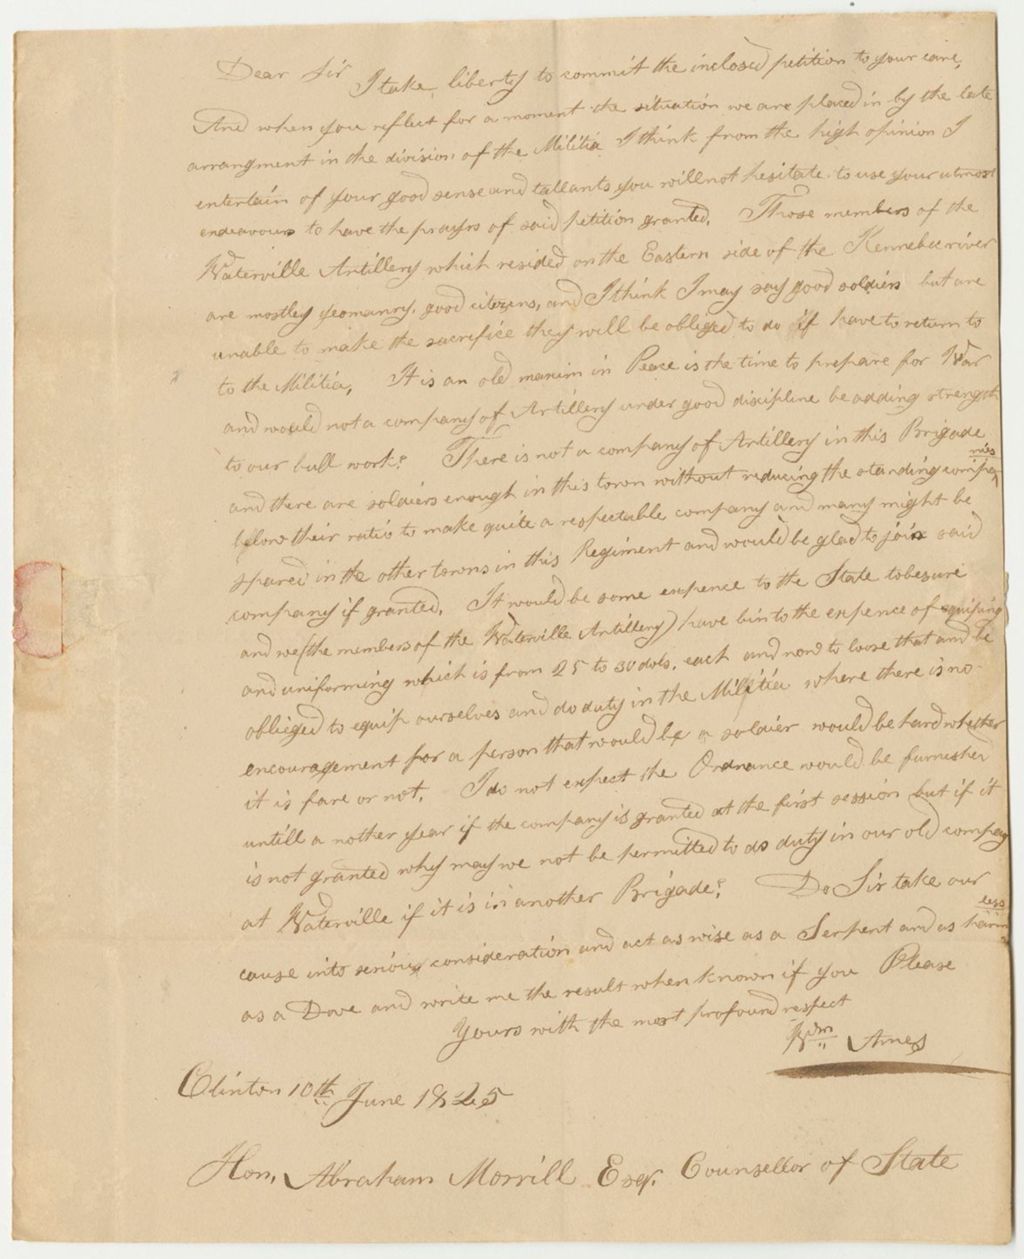 Dear Sir I take liberty to commit the inclosed petition to your care,
And when you reflect for a moment the situation we are placed in by the late
arrangment in the division of the Militia I think from the high opinion I
entertain of your good sense and tallants you will not hesitate to use your utmost
endeavours to have the prayrs of said petition granted. Those members of the
Waterville Artillery which resided on the Eastern side of the Kennebec river
are mostly yeomanry, good citizens, and I think I may say good soldiers but are
unable to make the sacrifice they will be obliged to do if have to return to
to the Militia. It is an old maxim in Peace is the time to prepare for War
and would not a company of Artillery under good discipline be adding strength
to our bull work? There is not a company of Artillery in this Brigade
and there are soldiers enough in this town without reducing the standing companies
below their ratio to make quite a respectable company and many might be
spared in the other towns in this Regiment and would be glad to join said
company if granted. It would be some expence to the State to be sure
and we (the members of the Waterville Artillery) have bin to the expence of equiping
and uniforming which is from 25 to 30 dols. each and now to loose that and be
obliged to equip ourselves and do duty in the Militia where there is no
encouragement for a person that would be a soldier would be hard whether
it is fare or not. I do not expect the Ordnance would be furnished
untill a nother year if the company is granted at the first session but if it
is not granted why may we not be permitted to do duty in our old company
at Waterville if it is in another Brigade? Do Sir take our
cause into serious consideration and act as wise as a Serpent and as harmless
as a Dove and write me the result when known if you Please
Yours with the most profound respect
Wm Ames
Clinton 10th June 1825
Hon. Abraham Morrill Esqr. Counsellor of State